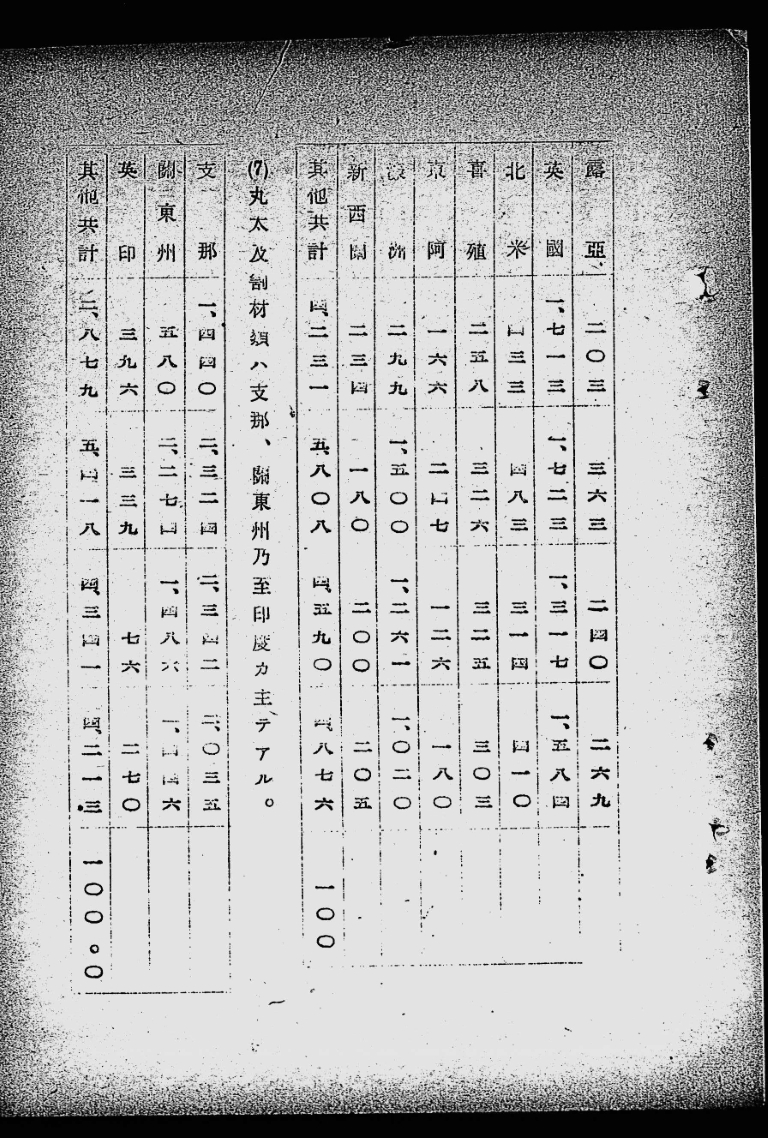 露亞 二〇三 三六三 二四〇 二六九
英國 一、七一三 一、七二三 一、三一七 一、五八四
北米 四三三 四八三 三一四 四一〇
喜殖 二五八 三二六 三二五 三〇三
阿 一六六 二四七 一二六 一八〇
洲 二九九 一、五〇〇 一、二六一 一、〇二〇
新西蘭 二三四 一八〇 二〇〇 二〇五
其他共計 四、二三一 五、八〇八 四、五九〇 四、八七六 一〇〇
(7)丸太及割材類ハ支那、關東州乃至印度カ主テアル。
支那 一、四四〇 二、三二四 二、三四二 二、〇三五
關東州 五八〇 二、二七四 一、四八六 一、四四六
英印 三九六 三三九 七六 二七〇
其他共計 二、八七九 五、四一八 四、三四一 四、二一三 一〇〇。〇